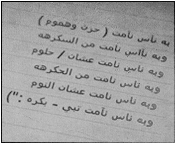 به ناس نامت ( حزن وهموم )
وبه ناس نامت من السكرهه
وبه ناس نامت عشان / حلوم
وبه ناس نامت من الحكرهه
وبه ناس نامت عشان النوم
وبه ناس نامت تبي - بكره :")